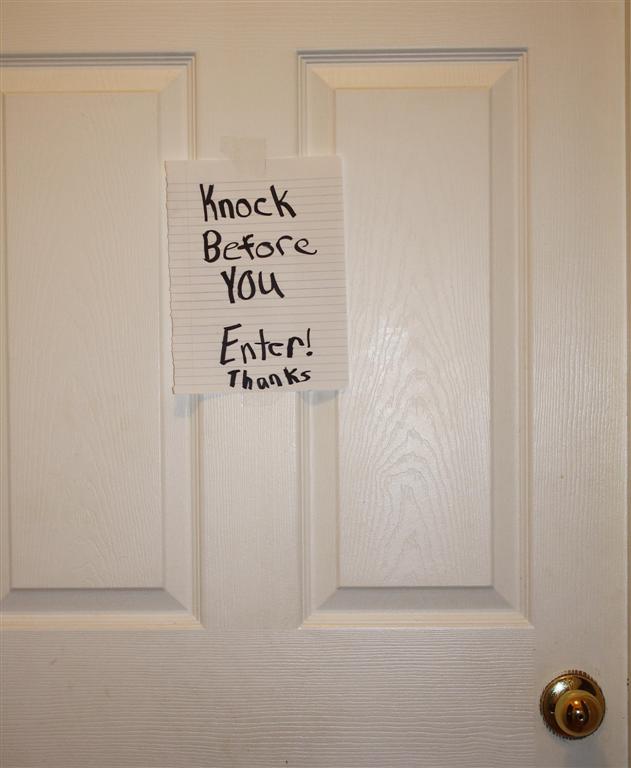 Knock
Before
YOU
Enter!
Thanks